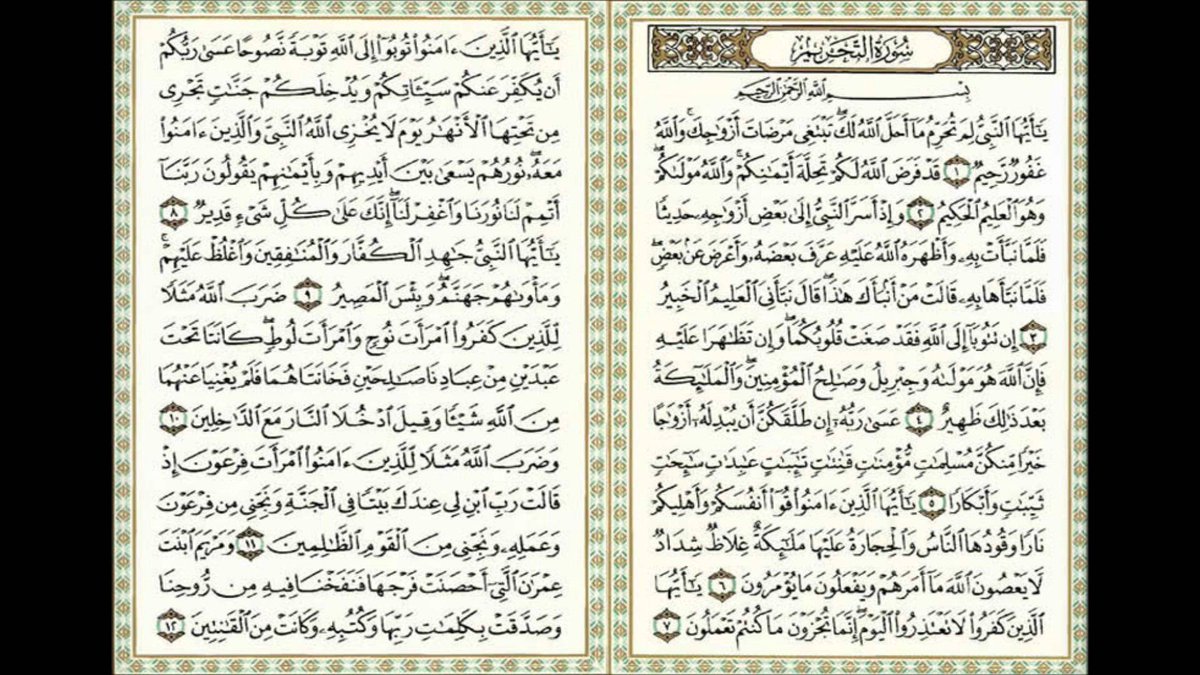 سُورَةُ التَّحْرِيمِ
بِسْمِ ٱللَّهِ ٱلرَّحْمَٰنِ ٱلرَّحِيمِ
يَٰٓأَيُّهَا ٱلنَّبِىُّ لِمَ تُحَرِّمُ مَآ أَحَلَّ ٱللَّهُ لَكَ ۖ تَبْتَغِى مَرْضَاتَ أَزْوَٰجِكَ ۚ وَٱللَّهُ
غَفُورٌ رَّحِيمٌ ١ قَدْ فَرَضَ ٱللَّهُ لَكُمْ تَحِلَّةَ أَيْمَٰنِكُمْ ۚ وَٱللَّهُ مَوْلَىٰكُمْ ۖ
وَهُوَ ٱلْعَلِيمُ ٱلْحَكِيمُ ٢ وَإِذْ أَسَرَّ ٱلنَّبِىُّ إِلَىٰ بَعْضِ أَزْوَٰجِهِۦ حَدِيثًا
فَلَمَّا نَبَّأَتْ بِهِۦ وَأَظْهَرَهُ ٱللَّهُ عَلَيْهِ عَرَّفَ بَعْضَهُۥ وَأَعْرَضَ عَنۢ بَعْضٍ ۖ
فَلَمَّا نَبَّأَهَا بِهِۦ قَالَتْ مَنْ أَنۢبَأَكَ هَٰذَا ۖ قَالَ نَبَّأَنِىَ ٱلْعَلِيمُ ٱلْخَبِيرُ
٣ إِن تَتُوبَآ إِلَى ٱللَّهِ فَقَدْ صَغَتْ قُلُوبُكُمَا ۖ وَإِن تَظَٰهَرَا عَلَيْهِ
فَإِنَّ ٱللَّهَ هُوَ مَوْلَىٰهُ وَجِبْرِيلُ وَصَٰلِحُ ٱلْمُؤْمِنِينَ ۖ وَٱلْمَلَٰٓئِكَةُ
بَعْدَ ذَٰلِكَ ظَهِيرٌ ٤ عَسَىٰ رَبُّهُۥٓ إِن طَلَّقَكُنَّ أَن يُبْدِلَهُۥٓ أَزْوَٰجًا
خَيْرًا مِّنكُنَّ مُسْلِمَٰتٍ مُّؤْمِنَٰتٍ قَٰنِتَٰتٍ تَٰٓئِبَٰتٍ عَٰبِدَٰتٍ سَٰٓئِحَٰتٍ
ثَيِّبَٰتٍ وَأَبْكَارًا ٥ يَٰٓأَيُّهَا ٱلَّذِينَ ءَامَنُوا۟ قُوٓا۟ أَنفُسَكُمْ وَأَهْلِيكُمْ
نَارًا وَقُودُهَا ٱلنَّاسُ وَٱلْحِجَارَةُ عَلَيْهَا مَلَٰٓئِكَةٌ غِلَاظٌ شِدَادٌ
لَّا يَعْصُونَ ٱللَّهَ مَآ أَمَرَهُمْ وَيَفْعَلُونَ مَا يُؤْمَرُونَ ٦ يَٰٓأَيُّهَا
ٱلَّذِينَ كَفَرُوا۟ لَا تَعْتَذِرُوا۟ ٱلْيَوْمَ ۖ إِنَّمَا تُجْزَوْنَ مَا كُنتُمْ تَعْمَلُونَ ٧
يَٰٓأَيُّهَا ٱلَّذِينَ ءَامَنُوا۟ تُوبُوٓا۟ إِلَى ٱللَّهِ تَوْبَةً نَّصُوحًا عَسَىٰ رَبُّكُمْ
أَن يُكَفِّرَ عَنكُمْ سَيِّـَٔاتِكُمْ وَيُدْخِلَكُمْ جَنَّٰتٍ تَجْرِى
مِن تَحْتِهَا ٱلْأَنْهَٰرُ يَوْمَ لَا يُخْزِى ٱللَّهُ ٱلنَّبِىَّ وَٱلَّذِينَ ءَامَنُوا۟
مَعَهُۥ ۖ نُورُهُمْ يَسْعَىٰ بَيْنَ أَيْدِيهِمْ وَبِأَيْمَٰنِهِمْ يَقُولُونَ رَبَّنَآ
أَتْمِمْ لَنَا نُورَنَا وَٱغْفِرْ لَنَآ ۖ إِنَّكَ عَلَىٰ كُلِّ شَىْءٍ قَدِيرٌ ٨
يَٰٓأَيُّهَا ٱلنَّبِىُّ جَٰهِدِ ٱلْكُفَّارَ وَٱلْمُنَٰفِقِينَ وَٱغْلُظْ عَلَيْهِمْ ۚ
وَمَأْوَىٰهُمْ جَهَنَّمُ ۖ وَبِئْسَ ٱلْمَصِيرُ ٩ ضَرَبَ ٱللَّهُ مَثَلًا
لِّلَّذِينَ كَفَرُوا۟ ٱمْرَأَتَ نُوحٍ وَٱمْرَأَتَ لُوطٍ ۖ كَانَتَا تَحْتَ
عَبْدَيْنِ مِنْ عِبَادِنَا صَٰلِحَيْنِ فَخَانَتَاهُمَا فَلَمْ يُغْنِيَا عَنْهُمَا
مِنَ ٱللَّهِ شَيْـًٔا وَقِيلَ ٱدْخُلَا ٱلنَّارَ مَعَ ٱلدَّٰخِلِينَ ١٠
وَضَرَبَ ٱللَّهُ مَثَلًا لِّلَّذِينَ ءَامَنُوا۟ ٱمْرَأَتَ فِرْعَوْنَ إِذْ
قَالَتْ رَبِّ ٱبْنِ لِى عِندَكَ بَيْتًا فِى ٱلْجَنَّةِ وَنَجِّنِى مِن فِرْعَوْنَ
وَعَمَلِهِۦ وَنَجِّنِى مِنَ ٱلْقَوْمِ ٱلظَّٰلِمِينَ ١١ وَمَرْيَمَ ٱبْنَتَ
عِمْرَٰنَ ٱلَّتِىٓ أَحْصَنَتْ فَرْجَهَا فَنَفَخْنَا فِيهِ مِن رُّوحِنَا
وَصَدَّقَتْ بِكَلِمَٰتِ رَبِّهَا وَكُتُبِهِۦ وَكَانَتْ مِنَ ٱلْقَٰنِتِينَ ١٢